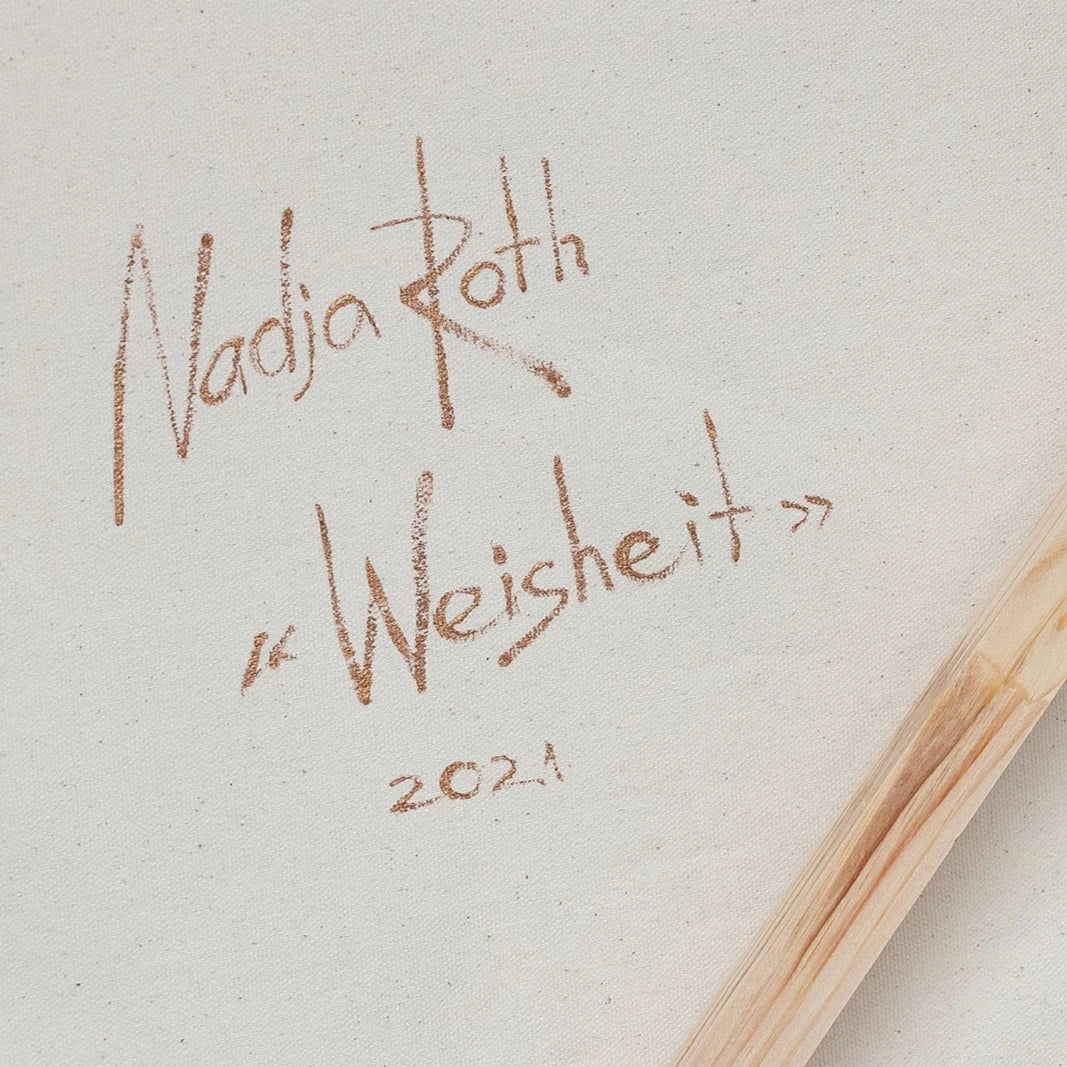 Nadja Roth
«Weisheit»
2021